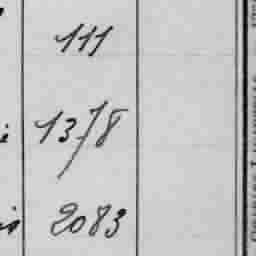 111
1378
2083